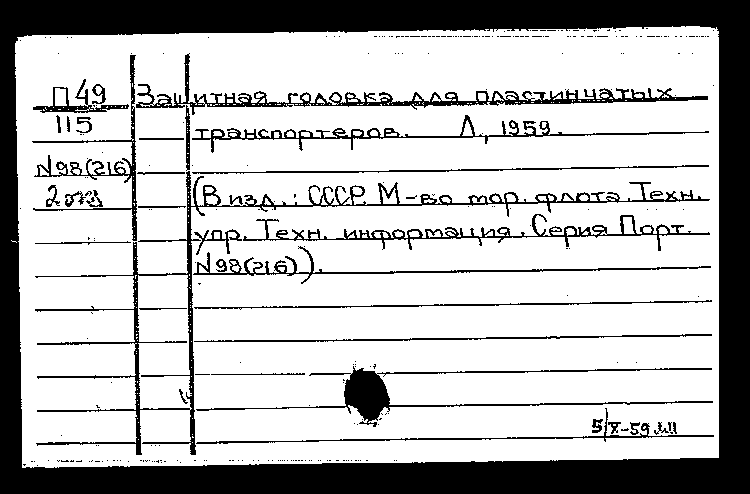 П49
115
N98(216)
2 экз
Защитная головка для пластинчатых
транспортеров. Л., 1959.
(В изд.: СССР. М-во мор. флота. Техн.
упр. Техн. информация. Серия Порт.
N98(216)).
5/X-59